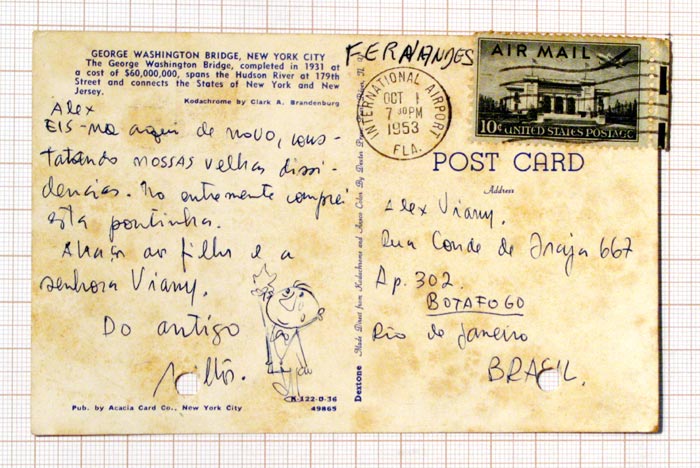 GEORGE WASHINGTON BRIDGE, NEW YORK CITY
The George Washington Bridge, completed in 1931 at
a cost of $60,000,000, spans the Hudson River at 179th
Street and connects the States of New York and New
Jersey.
Kodachrome by Clark A. Brandenburg
Alex
EIS-me aqui de novo, cons-
tatando nossas velhas dissi-
dencias. No entremente comprei
esta pontinha.
Abraço ao filho e a
senhora Viany.
Do antigo
Milton.
Pub. by Acacia Card Co., New York City
K-122-D-36
49865
Dextone
Made Direct from Kodachrome and Ansco Color By Dexter Press
FERNANDES
INTERNATIONAL AIRPORT
OCT 1
7 PM
1953
FLA.
AIR MAIL
10¢ UNITED STATES POSTAGE
POST CARD
Address
Alex Viany.
Rua Conde de Iraja 667
Ap. 302.
BOTAFOGO
Rio de Janeiro
BRASIL.